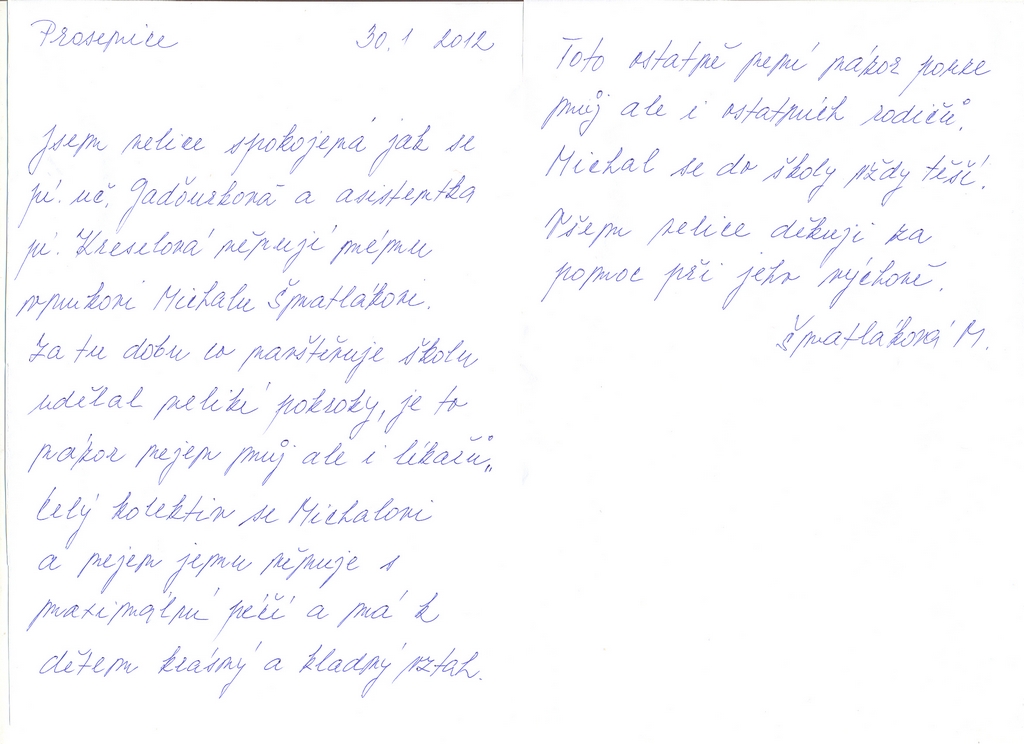 Prosenice 30.1 2012
Jsem velice spokojená jak se
pí. uč. Gaďourková a asistentka
pí. Kreselová věnují mému
vnukovi Michalu Šmatlákovi.
Za tu dobu co navštěvuje školu
udělal veliké pokroky, je to
názor nejen můj ale i lékařů,,
Celý kolektiv se Michalovi
a nejen jemu věnuje s
maximální péčí a má k
dětem krásný a kladný vztah.
Toto ostatně není názor pouze
můj ale i ostatních rodičů.
Michal se do školy vždy těší.
Všem velice děkuji za
pomoc při jeho výchově.
Šmatláková M.